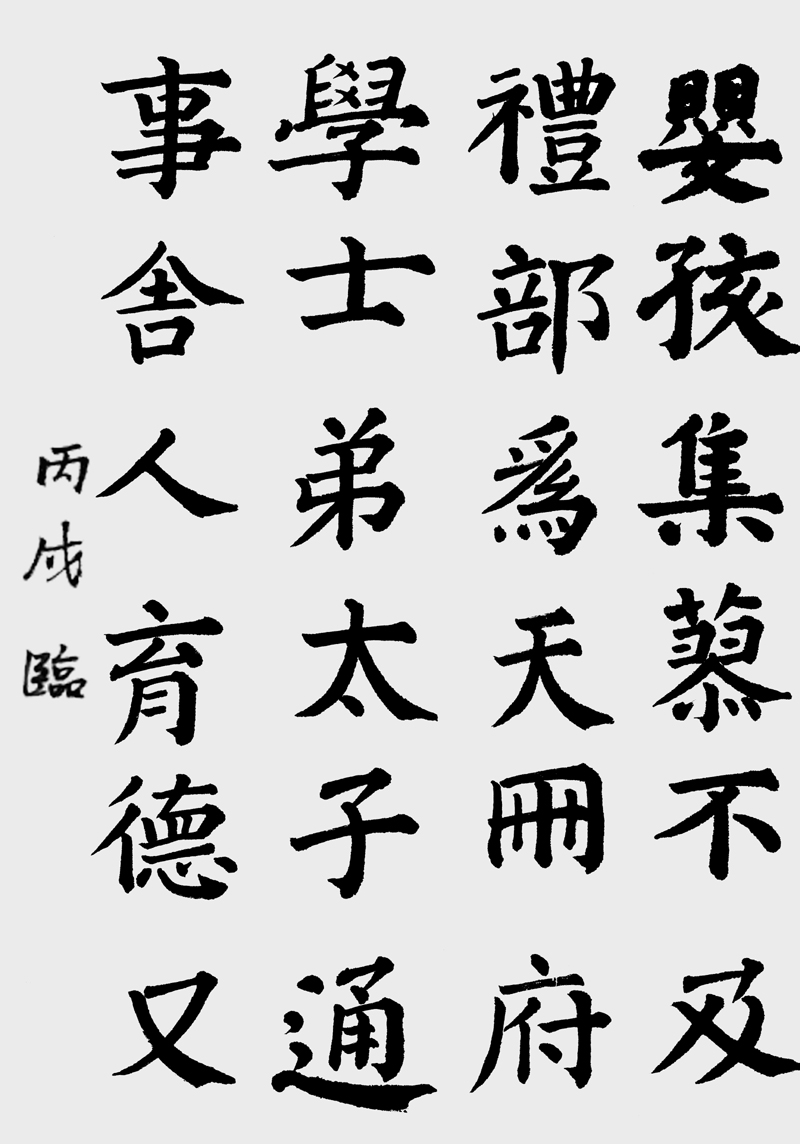 嬰孩集蓦不及
禮部爲天冊府
學士弟太子通
事舍人育德又
丙戌 臨